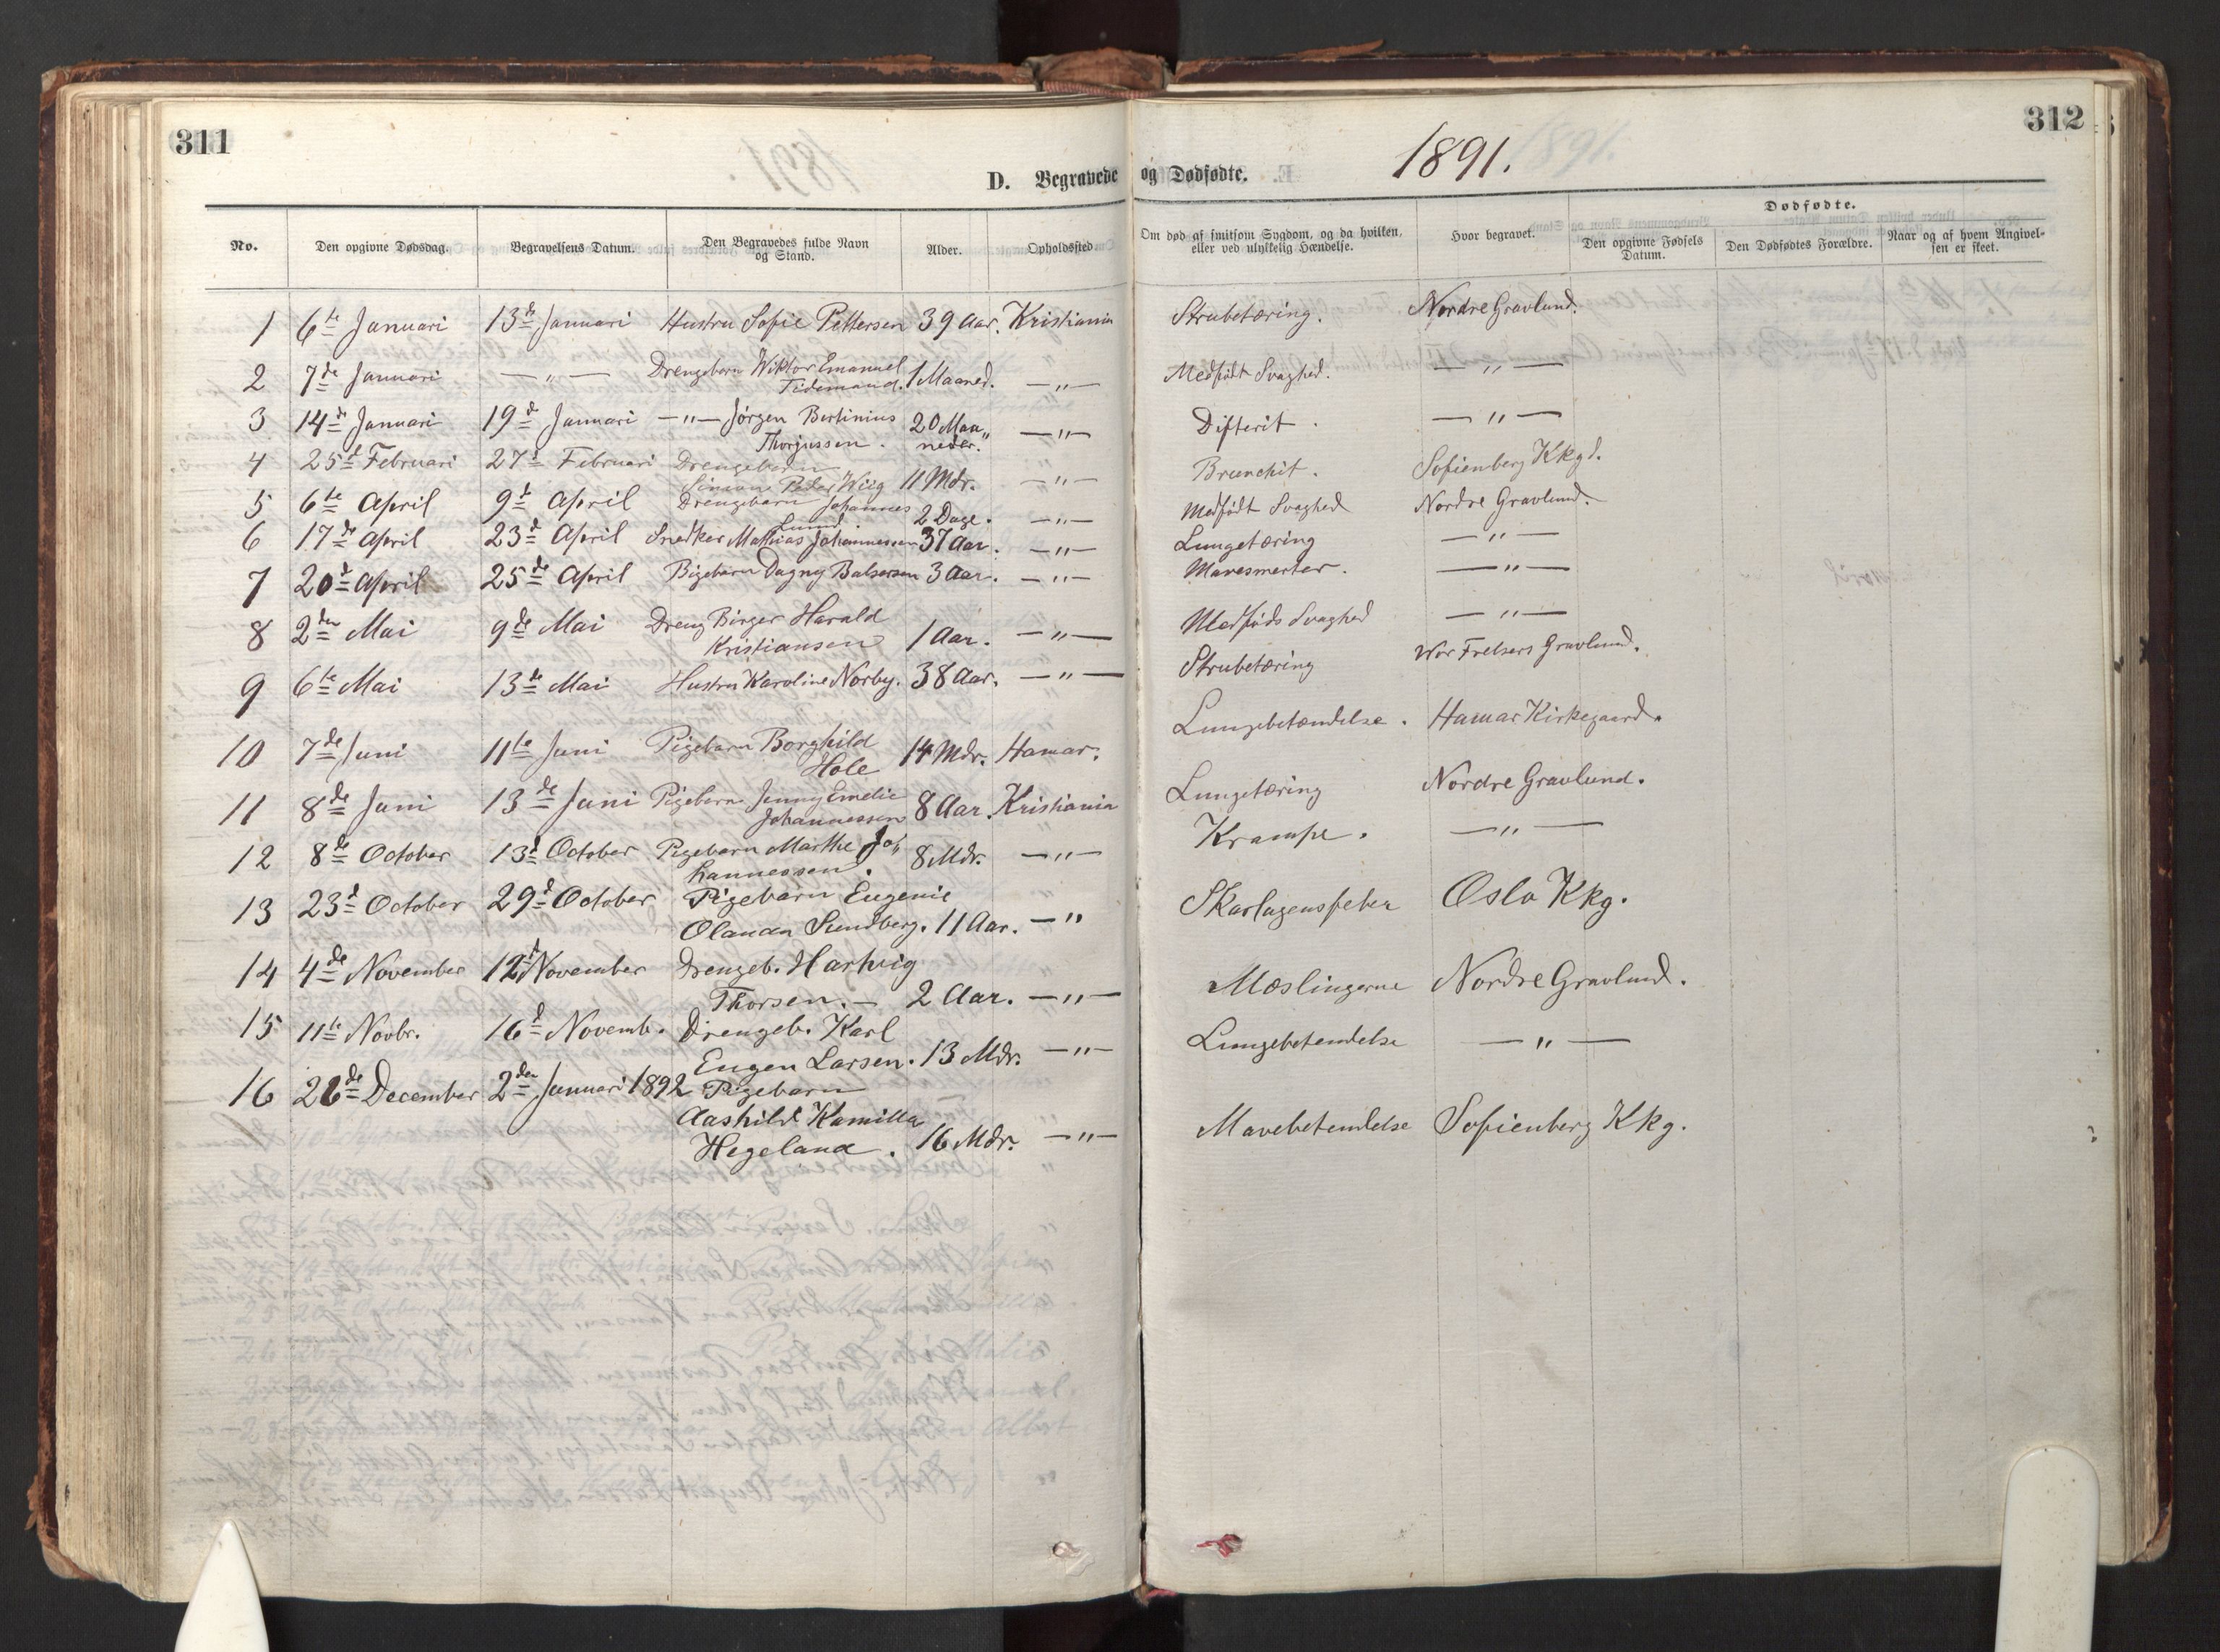 311
D. Begravede og Dødfødte. 1891. 312
No. Den opgivne Dødsdag. Begravelsens Datum. Den Begravedes fulde Navn og Stand. Alder. Opholdssted Om død af smitsom Sygdom, og da hvilken, eller ved ulykkelig Hændelse. Hvor begravet. Dødfødte. Den opgivne Fødsels Datum. Den Dødfødtes Forældre. Naar og af hvem Angivelsen er skeet.
1 6te Januari 13de Januari Hustru Sofie Pettersen 39 Aar. Kristiania Strubetæring. Nordre Gravlund.
2 7de Januari — " — Drengebarn Wiktor Emanuel Tidemand. 1 Maaned. — " — Medfødt Svaghed. — " —
3 14de Januari 19de Januari — " — Jørgen Bertinius Thorjussen. 20 Maaneder. — " — Difterit. — " —
4 25d Februari 27d Februari Drengebarn Simon Peder Wiig 11 Mdr. — " — Brunchit. Sofienberg Kkgd.
5 6te April 9d April Drengebarn Johannes Lund. 2 Dage. — " — Medfødt Svaghed Nordre Gravlund.
6 17de April 23d April Snedker Mathias Johannessen 37 Aar. — " — Lungetæring — " —
7 20d April 25de April Pigebarn Dagny Balsersen 3 Aar. — " — Mavesmerter. — " —
8 2den Mai 9de Mai Dreng Birger Harald Kristiansen 1 Aar. — " — Medføds Svaghed — " —
9 6te Mai 13de Mai Hustru Karoline Norby. 38 Aar. — " — Strubetæring Wor Frelsers Gravlund.
10 7de Juni 11te Juni Pigebarn Borghild Hole 14 Mdr. Hamar. Lungebetændelse. Hamar Kirkegaard.
11 8de Juni 13de Juni Pigebarn Jenny Emelie Johannessen 8 Aar. Kristiania Lungetæring Nordre Gravlund.
12 8de October 13d October Pigebarn Marthe Johannessen. 8 Mdr. — " — Krampe. — " —
13 23d October 29d October Pigebarn Eugenie Olanda Sundberg. 11 Aar. — " Skarlagensfeber Oslo Kkg.
14 4de November 12d November Drengeb. Hartvig Thorsen. — 2 Aar. — " — Mæslingerne Nordre Gravlund.
15 11te Novbr. 16d Novemb. Drengeb. Karl Eugen Larsen. 13 Mdr. — " — Lungebetendelse — " —
16 26de December 2den Januari 1892 Pigebarn Aashild Kamilla Hegeland. 16 Mdr. — " — Mavebetendelse Sofienberg Kkg.